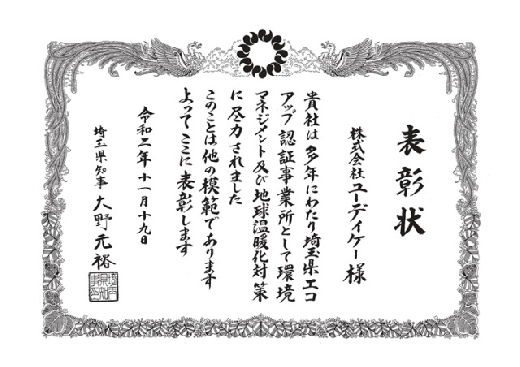 表彰状
株式会社ユーディケー様
貴社は多年にわたり埼玉県エコ
アップ認証事業所として環境
マネジメント及び地球温暖化対策
に尽力されました
このことは他の模範であります
よってここに表彰します
令和二年十一月十九日
埼玉県知事 大野元裕